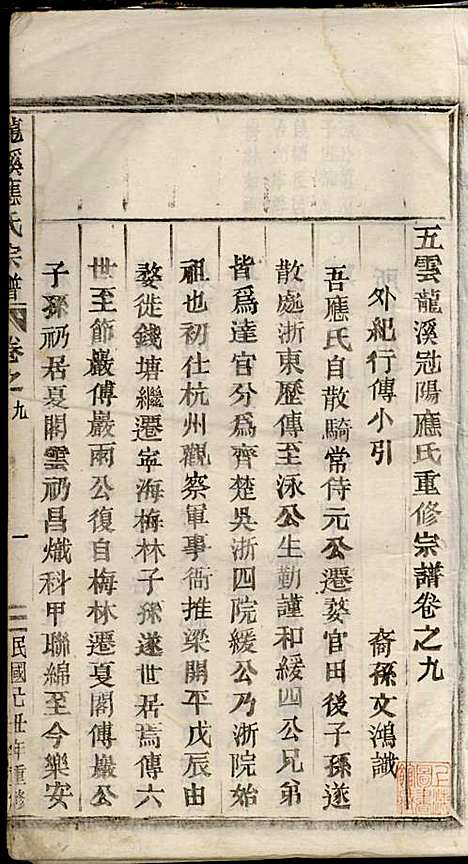 五雲龍溪冠陽應氏重修宗譜卷之九
外紀行傳小引
裔孫文鴻識
吾應氏自散騎常侍元公遷婺官田後子孫遂
散處浙東歷傳至泳公生勤謹和緩四公兄弟
皆爲達官分爲齊楚吳浙四院緩公乃浙院始
祖也初仕杭州觀察軍事衙推梁開平戊辰由
婺徙錢塘繼遷寧海梅林子孫遂世居焉傳六
世至節嚴傳巖雨公復自梅林遷夏閣傳巖公
子孫礽居夏閣雲礽昌熾科甲聯綿至今樂安
龍溪應氏宗譜
卷之九
一
民國己丑年重修